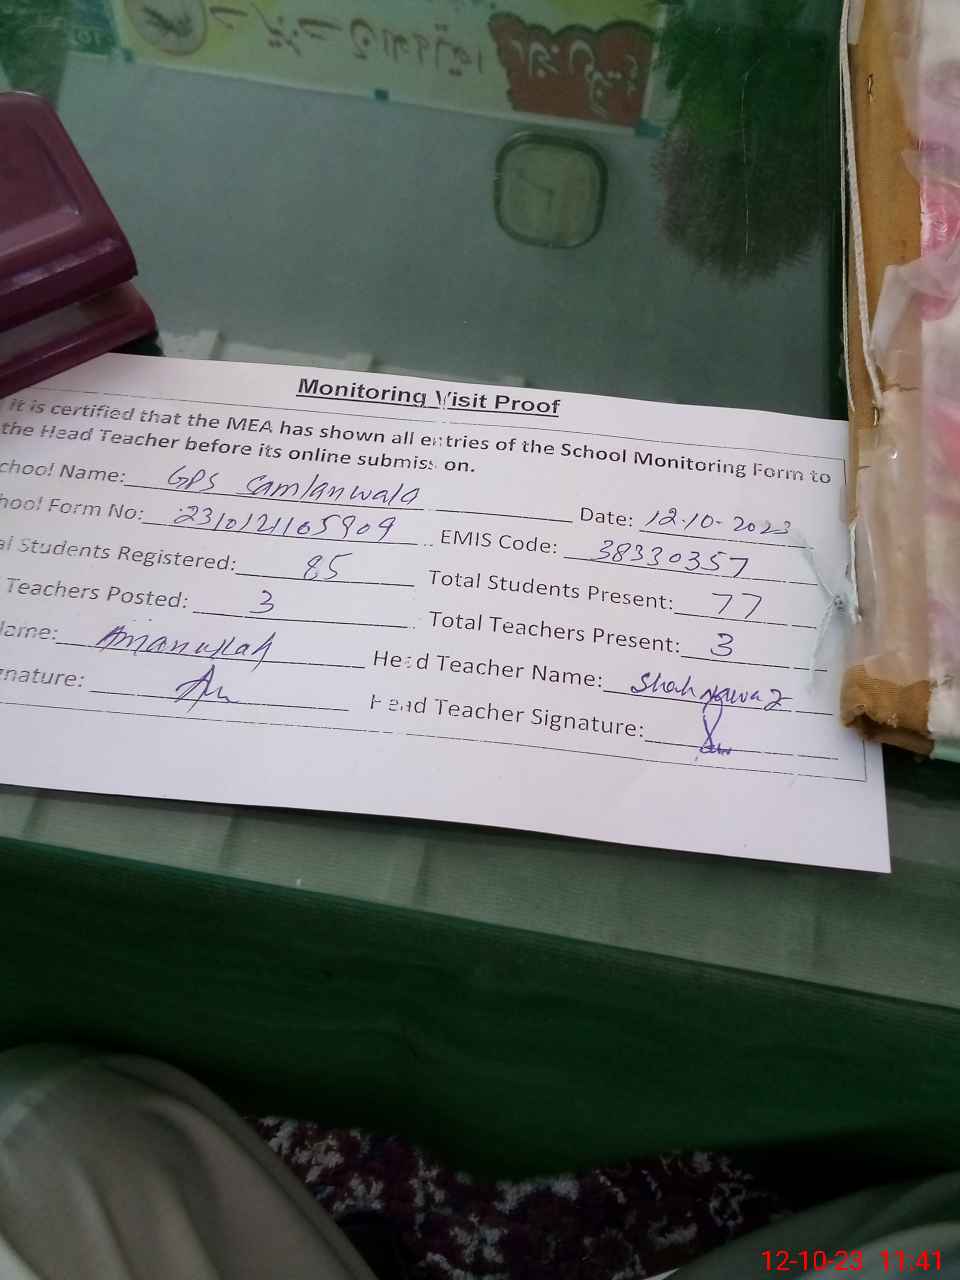 Monitoring Visit Proof
It is certified that the MEA has shown all entries of the School Monitoring Form to
the Head Teacher before its online submission.
chool Name: GPS Samlanwala Date: 12-10-2023
hool Form No: 2310121165909 EMIS Code: 38330357
al Students Registered: 85 Total Students Present: 77
Teachers Posted: 3 Total Teachers Present: 3
Name: Amanullah Head Teacher Name: Shah Nawaz
nature: Head Teacher Signature:
12-10-23 11:41